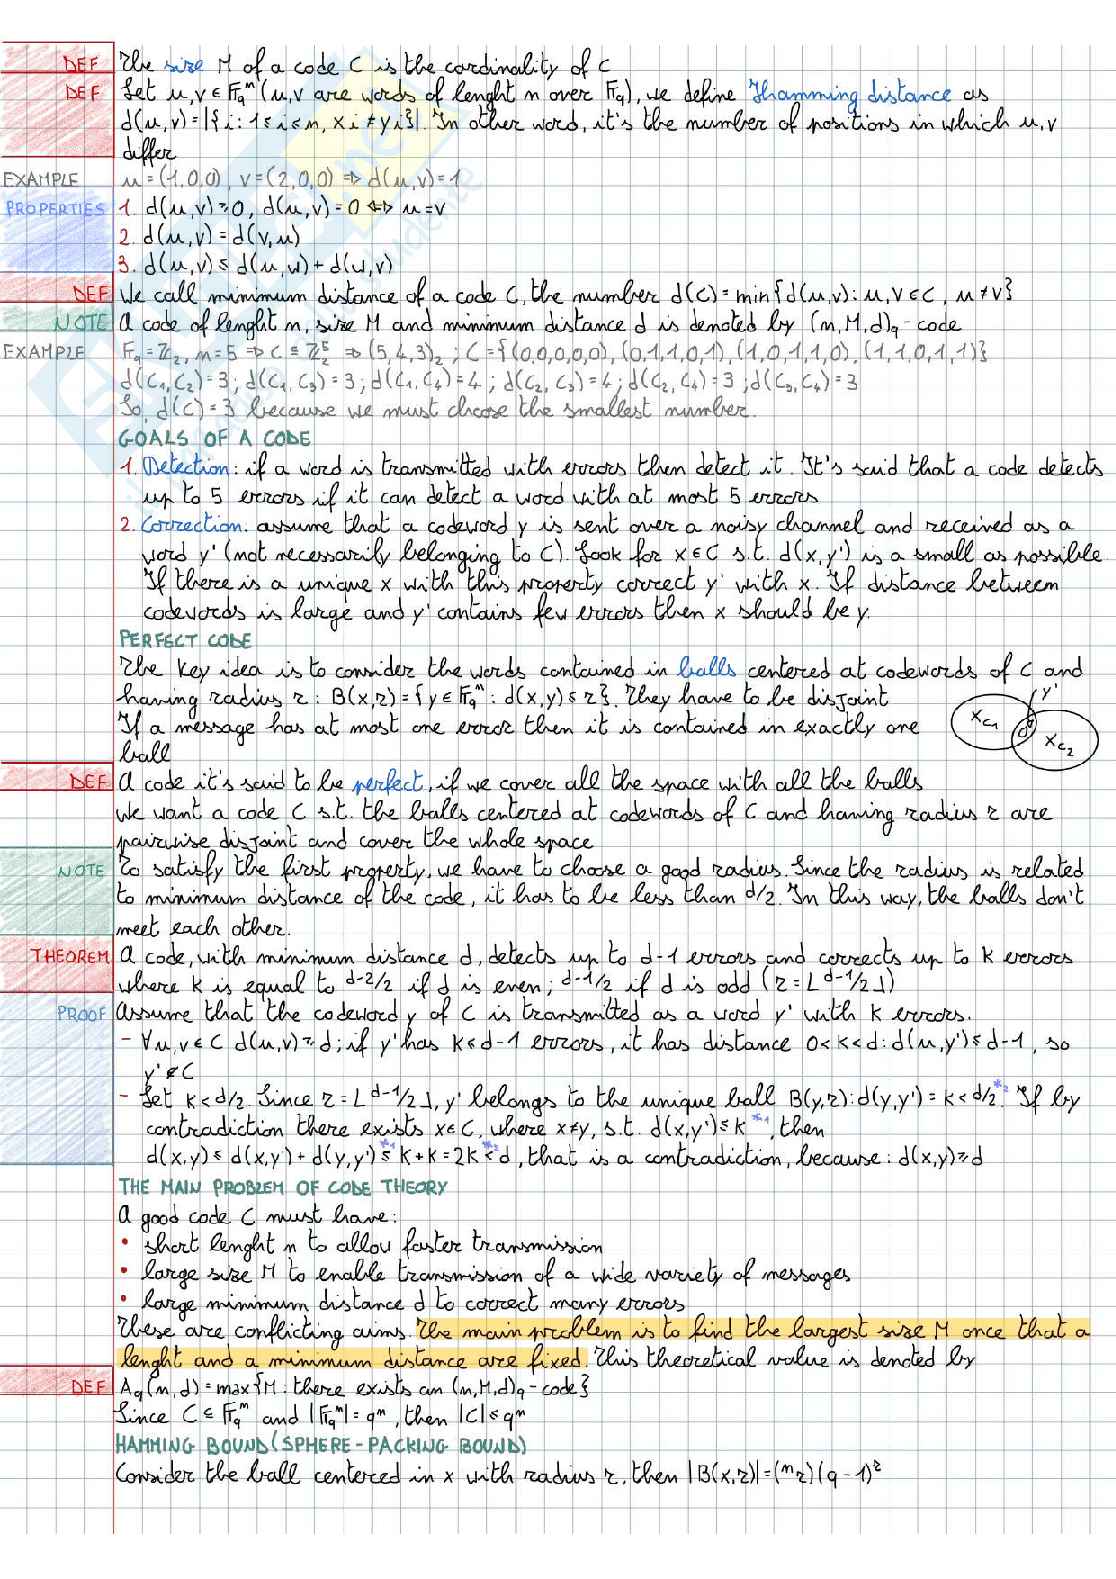 DEF The size M of a code C is the cardinality of C
DEF Let u,v ∈ 𝔽qⁿ (u,v are words of lenght n over 𝔽q), we define Hamming distance as
d(u,v)=|{i: 1≤i≤n, xi≠yi}|. In other word, it's the number of positions in which u,v
differ
EXAMPLE u=(1,0,0), v=(2,0,0) ⇒ d(u,v)=1
PROPERTIES 1. d(u,v)≥0, d(u,v)=0 ⇔ u=v
2. d(u,v)=d(v,u)
3. d(u,v)≤d(u,w)+d(w,v)
DEF We call minimum distance of a code C, the number d(C)=min{d(u,v): u,v∈C, u≠v}
NOTE A code of lenght n, size M and minimum distance d is denoted by (n,M,d)q-code
EXAMPLE Fq=ℤ₂, n=5 ⇒ C⊆ℤ₂⁵ ⇒ (5,4,3)₂; C={(0,0,0,0,0), (0,1,1,0,1), (1,0,1,1,0), (1,1,0,1,1)}
d(C₁,C₂)=3; d(C₁,C₃)=3; d(C₁,C₄)=4; d(C₂,C₃)=4; d(C₂,C₄)=3; d(C₃,C₄)=3
So, d(C)=3 because we must choose the smallest number.
GOALS OF A CODE
1. Detection: if a word is transmitted with errors then detect it. It's said that a code detects
up to 5 errors if it can detect a word with at most 5 errors
2. Correction: assume that a codeword y is sent over a noisy channel and received as a
word y' (not necessarily belonging to C). Look for x∈C s.t. d(x,y') is a small as possible
If there is a unique x with this property correct y' with x. If distance between
codewords is large and y' contains few errors then x should be y.
PERFECT CODE
The key idea is to consider the words contained in balls centered at codewords of C and
having radius r: B(x,r)={y∈𝔽qⁿ: d(x,y)≤r}. They have to be disjoint
y'
If a message has at most one error then it is contained in exactly one
xc₁ xc₂
ball
DEF A code it's said to be perfect, if we cover all the space with all the balls
We want a code C s.t. the balls centered at codewords of C and having radius r are
pairwise disjoint and cover the whole space
NOTE To satisfy the first property, we have to choose a good radius. Since the radius is related
to minimum distance of the code, it has to be less than d/2. In this way, the balls don't
meet each other.
THEOREM A code, with minimum distance d, detects up to d-1 errors and corrects up to k errors
where k is equal to d-2/2 if d is even; d-1/2 if d is odd (r=⌊d-1/2⌋)
PROOF Assume that the codeword y of C is transmitted as a word y' with k errors.
- ∀u,v∈C d(u,v)≥d; if y' has k≤d-1 errors, it has distance 0<k<d: d(u,y')≤d-1, so
y'∉C
- Let k<d/2. Since r=⌊d-1/2⌋, y' belongs to the unique ball B(y,r): d(y,y')=k<d/2 *². If by
contradiction there exists x∈C, where x≠y, s.t. d(x,y')≤k *¹, then
d(x,y)≤d(x,y')+d(y,y') ≤*¹ k+k=2k <*² d, that is a contradiction, because: d(x,y)≥d
THE MAIN PROBLEM OF CODE THEORY
A good code C must have:
• short lenght n to allow faster transmission
• large size M to enable transmission of a wide variety of messages
• large minimum distance d to correct many errors
These are conflicting aims. The main problem is to find the largest size M once that a
lenght and a minimum distance are fixed. This theoretical value is denoted by
DEF Aq(n,d)=max{M: there exists an (n,M,d)q-code}
Since C⊆𝔽qⁿ and |𝔽qⁿ|=qⁿ, then |C|≤qⁿ
HAMMING BOUND (SPHERE-PACKING BOUND)
Consider the ball centered in x with radius r, then |B(x,r)|=(ⁿr)(q-1)ʳ